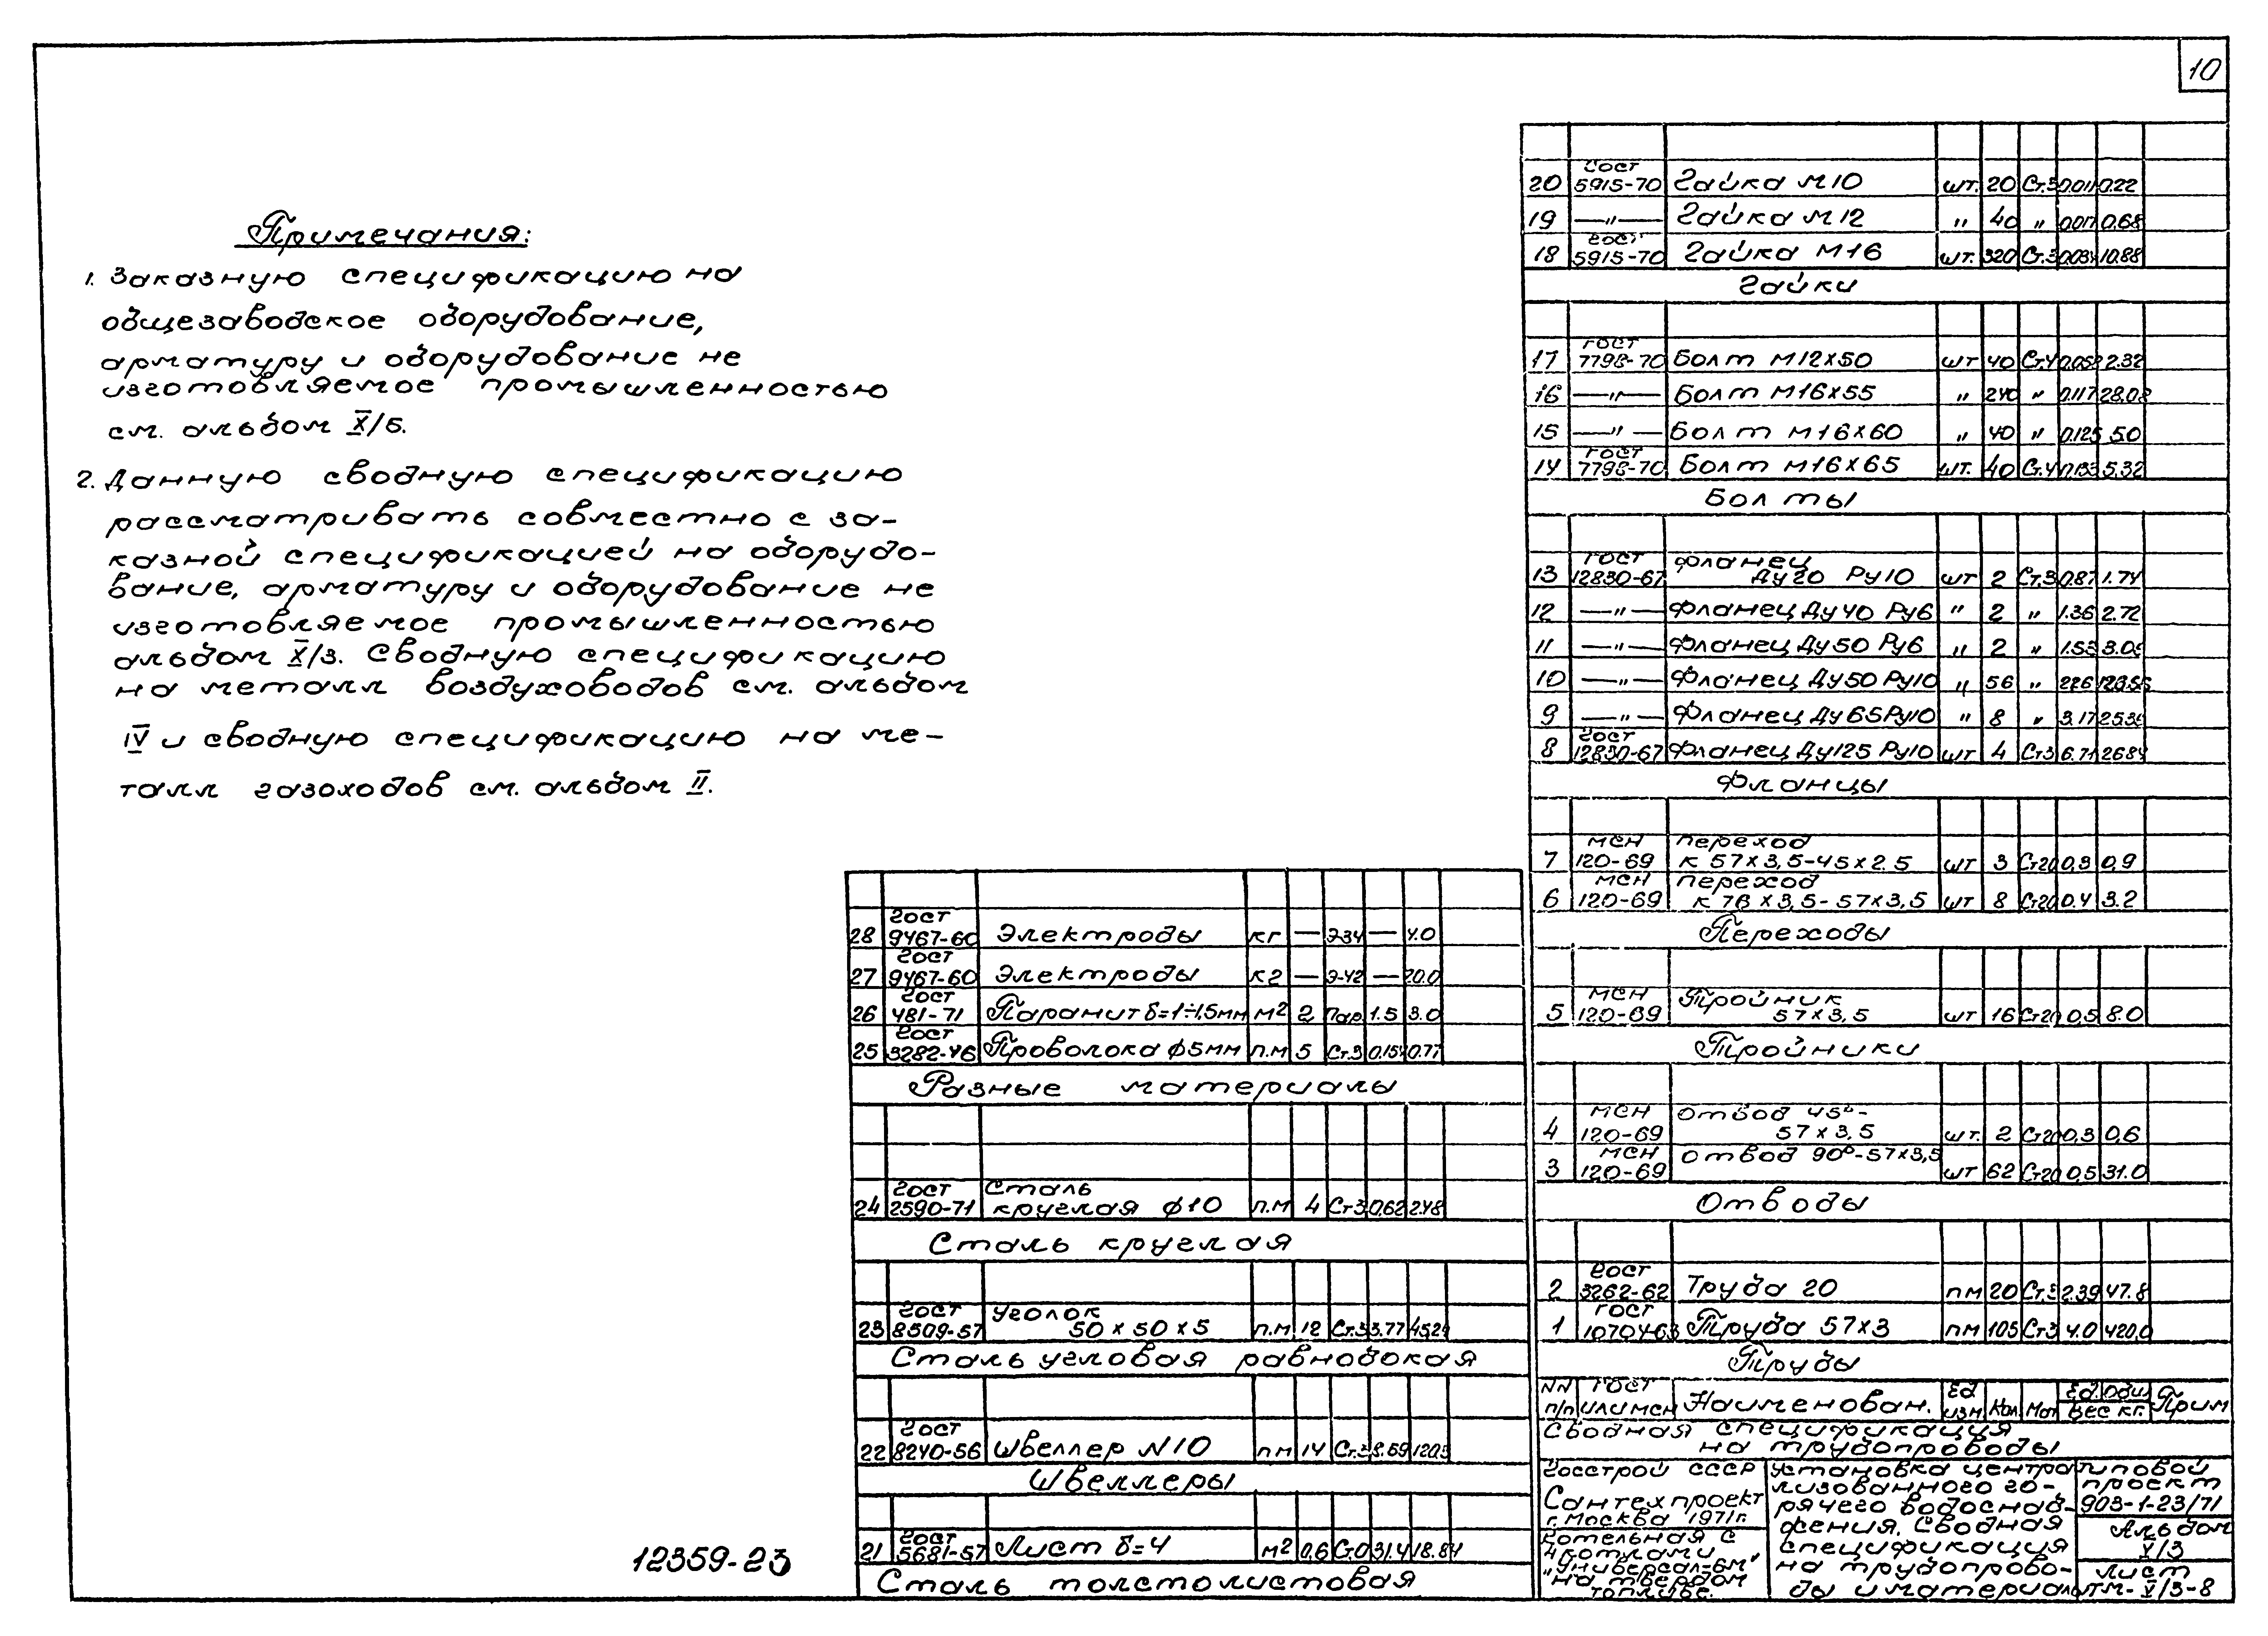 10
Примечания:
1. Заказную спецификацию на
общезаводское оборудование,
арматуру и оборудование не
изготовляемое промышленностью
см. альбом X/5.
2. Данную сводную спецификацию
рассматривать совместно с за-
казной спецификацией на оборудо-
вание, арматуру и оборудование не
изготовляемое промышленностью
альбом X/3. Сводную спецификацию
на металл воздуховодов см. альбом
IV и сводную спецификацию на ме-
талл газоходов см. альбом II.
28 ГОСТ 9467-60 Электроды кг — Э-34 — 4.0
27 ГОСТ 9467-60 Электроды кг — Э-42 — 20.0
26 ГОСТ 481-71 Паранит δ=1÷1.5мм м2 2 Пар. 1.5 3.0
25 ГОСТ 3282-46 Проволока ф5мм п.м 5 Ст.3 0.154 0.77
Разные материалы
24 ГОСТ 2590-71 Сталь круглая ф10 п.м 4 Ст3 0.62 2.48
Сталь круглая
23 ГОСТ 8509-57 Уголок 50×50×5 п.м. 12 Ст.3 3.77 45.24
Сталь угловая равнобокая
22 ГОСТ 8240-56 Швеллер N10 пм 14 Ст.3 8.59 120.3
Швеллеры
21 ГОСТ 5681-57 Лист δ=4 м2 0,6 Ст.0 31.4 18.84
Сталь толстолистовая
20 ГОСТ 5915-70 Гайка М10 шт. 20 Ст.3 0.011 0.22
19 —"— Гайка М12 " 40 " 0.017 0.68
18 ГОСТ 5915-70 Гайка М16 шт. 320 Ст.3 0.034 10.88
Гайки
17 ГОСТ 7798-70 Болт М12×50 шт 40 Ст.4 0.058 2.32
16 —"— Болт М16×55 " 240 " 0.117 28.08
15 —"— Болт М16×60 " 40 " 0.125 5.0
14 ГОСТ 7798-70 Болт М16×65 шт. 40 Ст.4 0.133 5.32
Болты
13 ГОСТ 12830-67 Фланец Ду20 Ру10 шт 2 Ст.3 0.87 1.74
12 —"— Фланец Ду40 Ру6 " 2 " 1.36 2.72
11 —"— Фланец Ду50 Ру6 " 2 " 1.53 3.06
10 —"— Фланец Ду50 Ру10 " 56 " 2.26 126.56
9 —"— Фланец Ду65 Ру10 " 8 " 3.17 25.36
8 ГОСТ 12830-67 Фланец Ду125 Ру10 шт 4 Ст3 6.71 26.84
Фланцы
7 МСН 120-69 Переход К 57×3,5-45×2.5 шт 3 Ст20 0.3 0,9
6 МСН 120-69 Переход К 76×3,5-57×3,5 шт 8 Ст20 0.4 3.2
Переходы
5 МСН 120-69 Тройник 57×3,5 шт 16 Ст20 0,5 8.0
Тройники
4 МСН 120-69 Отвод 45°- 57×3,5 шт. 2 Ст20 0,3 0,6
3 МСН 120-69 Отвод 90°-57×3,5 шт 62 Ст20 0,5 31.0
Отводы
2 ГОСТ 3262-62 Труба 20 пм 20 Ст.3 2.39 47.8
1 ГОСТ 10704-63 Труба 57×3 пм 105 Ст3 4.0 420,0
Трубы
NN п/п ГОСТ или МСН Наименован. Ед изм Кол. Мат Ед. Общ. Вес кг. Прим
Сводная спецификация
на трубопроводы
Госстрой СССР
Сантехпроект
г. Москва 1971г.
Котельная с
4 котлами
"Универсал-6М"
на твердом
топливе.
Установка центра
лизованного го-
рячего водоснаб-
жения. Сводная
спецификация
на трубопрово-
ды и материалы
Типовой
проект
903-1-23/71
Альбом
X/3
Лист
ТМ-X/3-8
12359-23